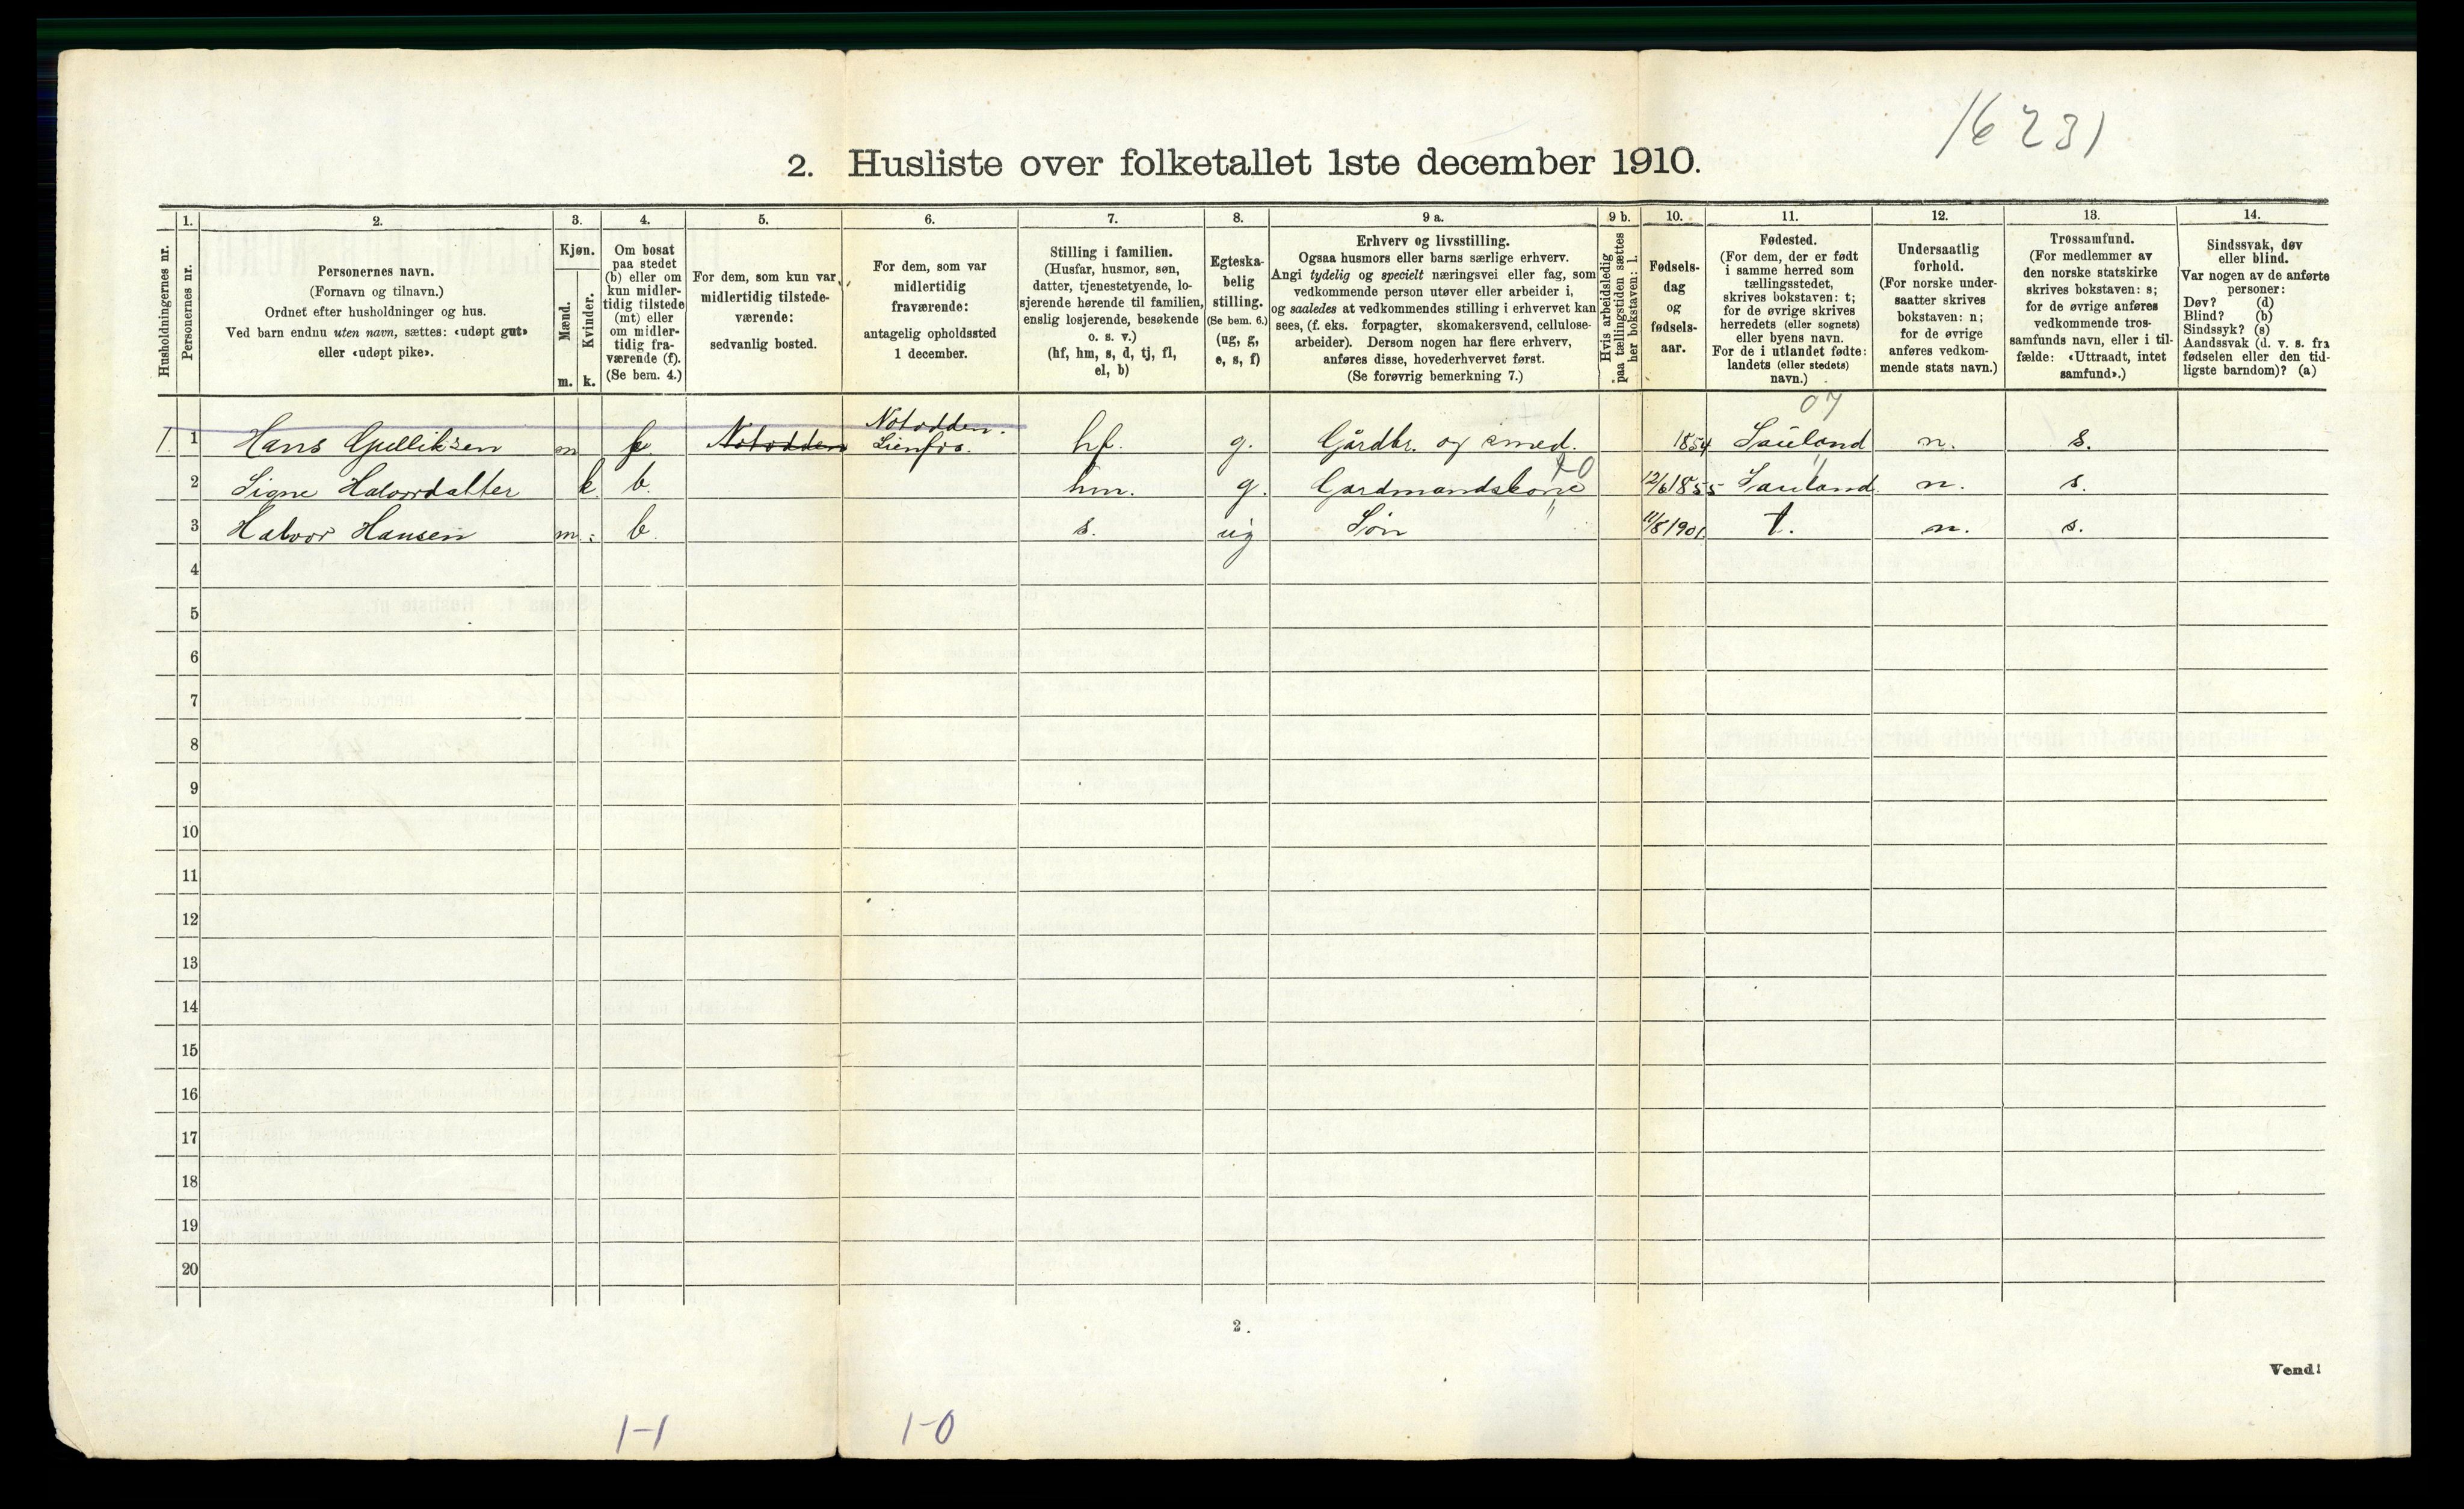 16231
2. Husliste over folketallet 1ste december 1910.
Husholdningernes nr.
1.
Personernes nr.
2.
Personernes navn.
(Fornavn og tilnavn.)
Ordnet efter husholdninger og hus.
Ved barn endnu uten navn, sættes: «udøpt gut»
eller «udøpt pike».
3.
Kjøn.
Mænd.
Kvinder.
m. k.
4.
Om bosat
paa stedet
(b) eller om
kun midler-
tidig tilstede
(mt) eller
om midler-
tidig fra-
værende (f).
(Se bem. 4.)
5.
For dem, som kun var
midlertidig tilstede-
værende:
sedvanlig bosted.
6.
For dem, som var
midlertidig
fraværende:
antagelig opholdssted
1 december.
7.
Stilling i familien.
(Husfar, husmor, søn,
datter, tjenestetyende, lo-
sjerende hørende til familien,
enslig losjerende, besøkende
o. s. v.)
(hf, hm, s, d, tj, fl,
el, b)
8.
Egteska-
belig
stilling.
(Se bem. 6.)
(ug, g,
e, s, f)
9 a.
Erhverv og livsstilling.
Ogsaa husmors eller barns særlige erhverv.
Angi tydelig og specielt næringsvei eller fag, som
vedkommende person utøver eller arbeider i,
og saaledes at vedkommendes stilling i erhvervet kan
sees, (f. eks. forpagter, skomakersvend, cellulose-
arbeider). Dersom nogen har flere erhverv,
anføres disse, hovederhvervet først.
(Se forøvrig bemerkning 7.)
9 b.
Hvis arbeidsledig
paa tællingstiden sættes
her bokstaven: l.
10.
Fødsels-
dag
og
fødsels-
aar.
11.
Fødested.
(For dem, der er født
i samme herred som
tællingsstedet,
skrives bokstaven: t;
for de øvrige skrives
herredets (eller sognets)
eller byens navn.
For de i utlandet fødte:
landets (eller stedets)
navn.)
12.
Undersaatlig
forhold.
(For norske under-
saatter skrives
bokstaven: n;
for de øvrige
anføres vedkom-
mende stats navn.)
13.
Trossamfund.
(For medlemmer av
den norske statskirke
skrives bokstaven: s;
for de øvrige anføres
vedkommende tros-
samfunds navn, eller i til-
fælde: «Uttraadt, intet
samfund».)
14.
Sindssvak, døv
eller blind.
Var nogen av de anførte
personer:
Døv? (d)
Blind? (b)
Sindssyk? (s)
Aandssvak (d. v. s. fra
fødselen eller den tid-
ligste barndom)? (a)
07
Notodden.
1. 1 Hans Gulliksen m f Notodden Lienfos. hf. g. Gårdbr. og smed. 1854 Sauland n. s.
2 Signe Halvordatter k b. hm. g. Gardmandskone 12/6 1855 Sauland. n. s.
3 Halvor Hansen m. b. s. ug Søn 11/8 1901. t. n. s.
4
5
6
7
8
9
10
11
12
13
14
15
16
17
18
19
20
2
Vend!
1-1 1-0